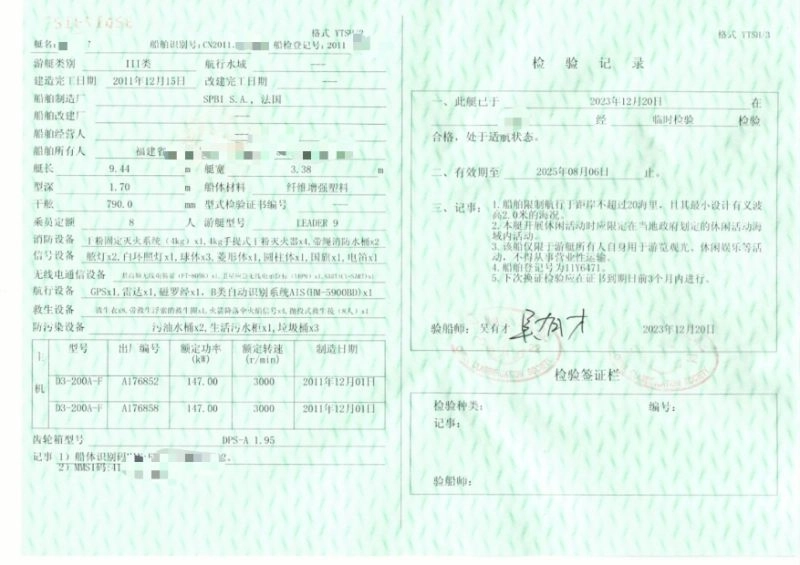 格式 YTSH/2
艇名:
船舶识别号:CN2011.
船检登记号:2011
游艇类别 III类 航行水域 ---
建造完工日期 2011年12月15日 改建完工日期 ---
船舶制造厂 SPBI S.A., 法国
船舶改建厂 ---
船舶经营人 ---
船舶所有人 福建省
艇长 9.44 m 艇宽 3.38 m
型深 1.70 m 船体材料 纤维增强塑料
干舷 790.0 mm 型式检验证书编号 ---
乘员定额 8 人 游艇型号 LEADER 9
消防设备 干粉固定灭火系统(4kg)x1,4kg手提式干粉灭火器x4,带绳消防水桶x2
信号设备 舷灯x2,白环照灯x1,球体x3,菱形体x1,圆柱体x1,国旗x1,电笛x1
无线电通信设备
航行设备 GPSx1,雷达x1,磁罗经x1,B类自动识别系统AIS(HM-5900BD)x1
救生设备
防污染设备 污油水桶x2,生活污水柜x1,垃圾桶x3
主机
型号 出厂编号 额定功率(kW) 额定转速(r/min) 制造日期
D3-200A-F A176852 147.00 3000 2011年12月01日
D3-200A-F A176858 147.00 3000 2011年12月01日
齿轮箱型号 DPS-A 1.95
记事 1) 船体识别码
2) MMSI码:41
格式 YTSH/3
检验记录
一、此艇已于 2023年12月20日 在
经 临时检验 检验
合格,处于适航状态。
二、有效期至 2025年08月06日 止。
三、记事: 1.船舶限制航行于距岸不超过20海里,且其最小设计有义波
高2.0米的海况。
2.本艇开展休闲活动时应限定在当地政府划定的休闲活动海
域内活动。
3.该船仅限于游艇所有人自身用于游览观光、休闲娱乐等活
动,不得从事营业性运输。
4.船舶登记号为11Y6471。
5.下次换证检验应在证书到期日前3个月内进行。
验船师: 吴有才 吴有才 2023年12月20日
检验签证栏
检验种类: 编号:
记事:
验船师: